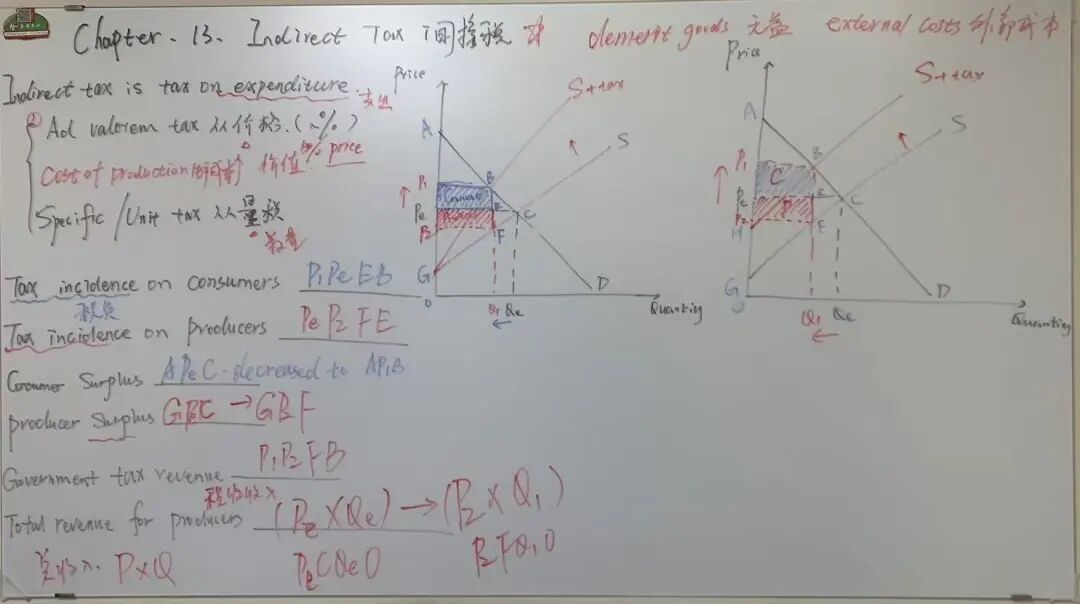 Chapter. 13. Indirect Tax 间接税 对 demerit goods 无益 external costs 外部成本
Indirect tax is tax on expenditure. 支出
① Ad valorem tax 从价税. (~%)
cost of production 价值 % price
Specific / Unit tax 从量税
数量
Tax incidence on consumers P₁PeEB
税负
Tax incidence on producers PeP₂FE
Consumer Surplus APeC - decreased to AP₁B
producer Surplus GPeC → GP₂F
Government tax revenue P₁P₂FB
税收收入
Total revenue for producers (Pe×Qe) → (P₂×Q₁)
总收入. P×Q PeCQeO P₂FQ₁O
Price
S+tax
S
A
P₁
B
Pe
E
C
P₂
F
G
O
Q₁ Qe
D
Quantity
Price
S+tax
S
A
P₁
B
C
Pe
E
C
P
P₂
F
H
G
O
Q₁ Qe
D
Quantity